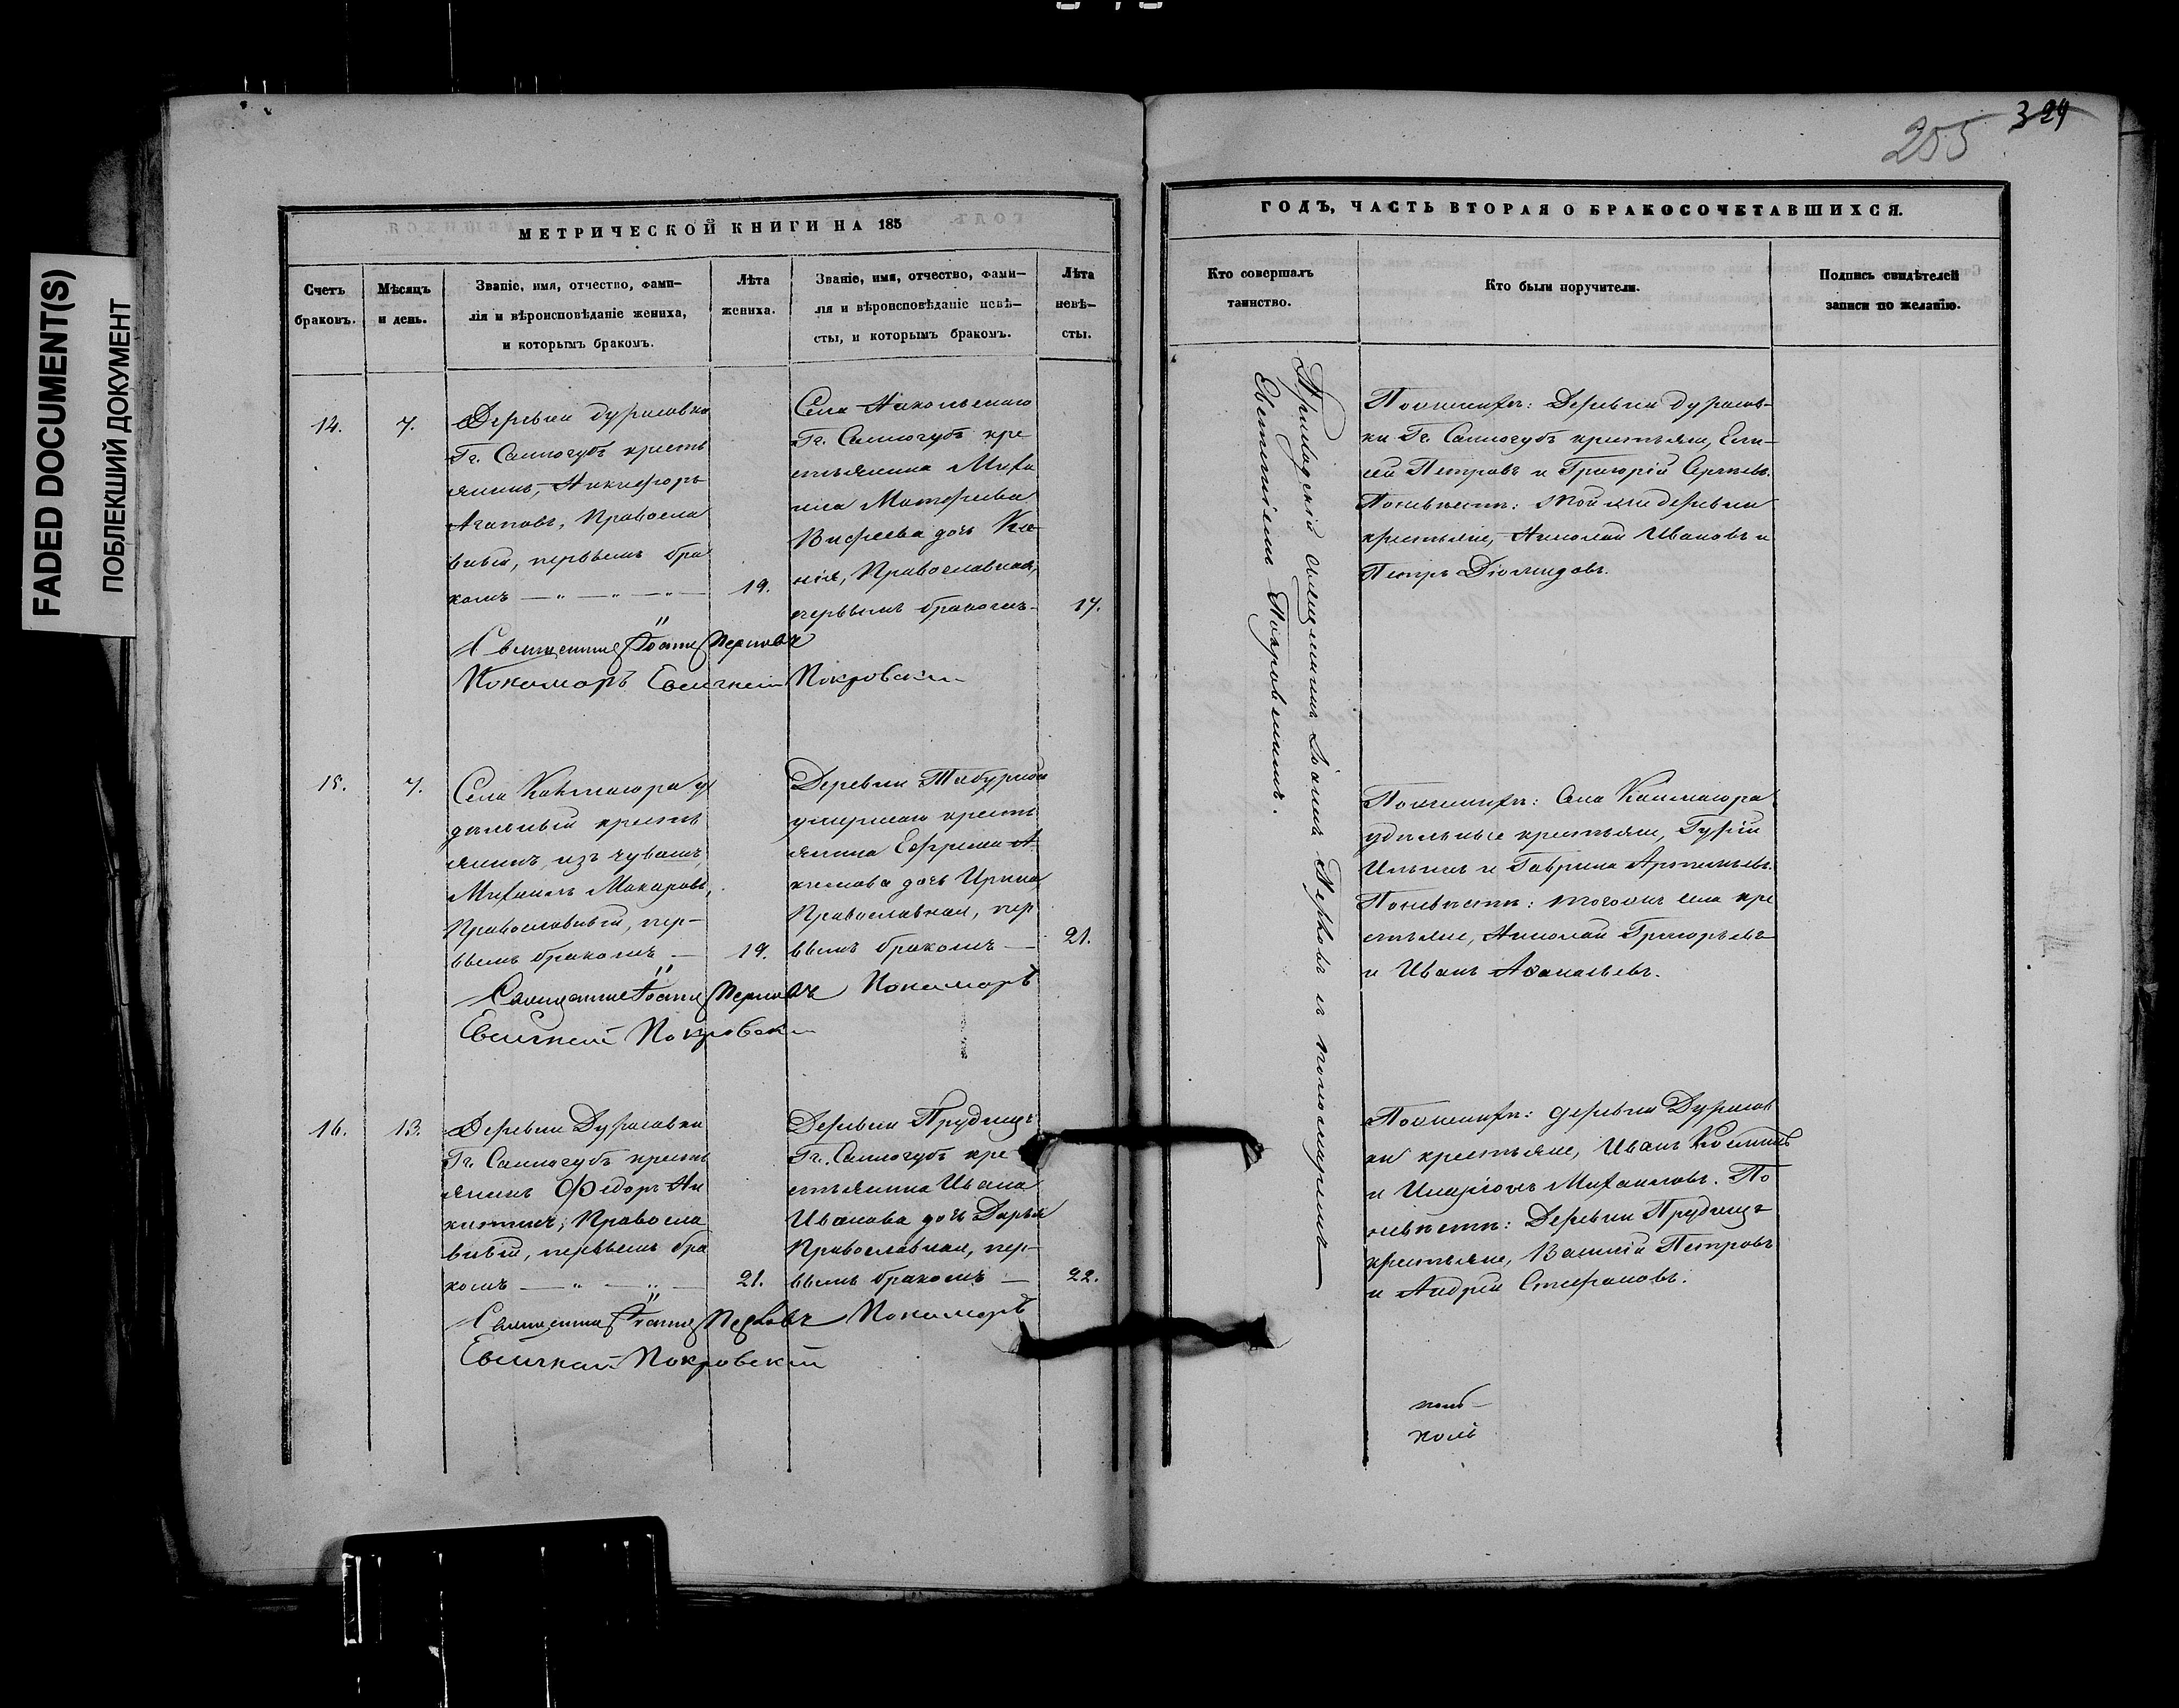 FADED DOCUMENT(S)
ПОБЛЕКШИЙ ДОКУМЕНТ
255 324
МЕТРИЧЕСКОЙ КНИГИ НА 185
Счетъ браковъ.
Мѣсяцъ и день.
Званіе, имя, отчество, фами-
лія и вѣроисповѣданіе жениха,
и которымъ бракомъ.
Лѣта жениха.
Званіе, имя, отчество, фами-
лія и вѣроисповѣданіе невѣ-
сты, и которымъ бракомъ.
Лѣта невѣ-
сты.
14.
7.
Деревни Дурасовки
Гг. Самогубъ кресть
янинъ, Никифоръ
Агаповъ, Правосла
вный, первымъ бра
комъ
19.
Села Никольскаго
Гг. Самогубъ кре
стьянина Миха
ила Матфеева
дочь
Православная,
первымъ бракомъ
17.
Священникъ Іоаннъ Перловъ
Пономарь Евсигней Покровский
15.
7.
Села Кокшагора у
дѣльный кресть
янинъ, изъ чувашъ,
Михаилъ Макаровъ,
Православный, пер-
вымъ бракомъ
19.
Деревни
умершаго кресть
янина Ефрема А
кимова дочь Ирина
Православная, пер
вымъ бракомъ
21.
Священникъ Іоаннъ Перловъ Пономарь
Евсигней Покровский
16.
13.
Деревни Дурасовки
Гг. Самогубъ кресть
янинъ Федоръ Ни
китинъ, Правосла
вный, первымъ бра
комъ
21.
Деревни Прудищъ
Гг. Самогубъ кре
стьянина Ивана
Иванова дочь Дарья
Православная, пер-
вымъ бракомъ
22.
Священникъ Іоаннъ Перловъ Пономарь
Евсигней Покровский
ГОДЪ, ЧАСТЬ ВТОРАЯ О БРАКОСОЧЕТАВШИХСЯ.
Кто совершалъ
таинство.
Кто были поручители.
Подпись свидѣтелей
записи по желанію.
Приходскій священникъ Іоаннъ Перловъ съ пономаремъ
Евсигніемъ Покровскимъ.
По женихѣ: Деревни Дурасов-
ки Гг. Самогубъ крестьяне, Ели-
сей Петровъ и Григорій Сергѣевъ.
По невѣстѣ: той же деревни
крестьяне, Николай Ивановъ и
Петръ Діомидовъ.
По женихѣ: Села Кокшагора
удѣльные крестьяне, Гурій
Ильинъ и Гаврила Артемьевъ.
По невѣстѣ: тогожъ села кре
стьяне, Николай Григорьевъ
и Иванъ Аѳанасьевъ.
По женихѣ: деревни Дурасов
ки крестьяне, Иванъ Костинъ
и Иларіонъ Михаиловъ. По
невѣстѣ: Деревни Прудищъ
крестьяне, Василій Петровъ
и Андрей Стефановъ.